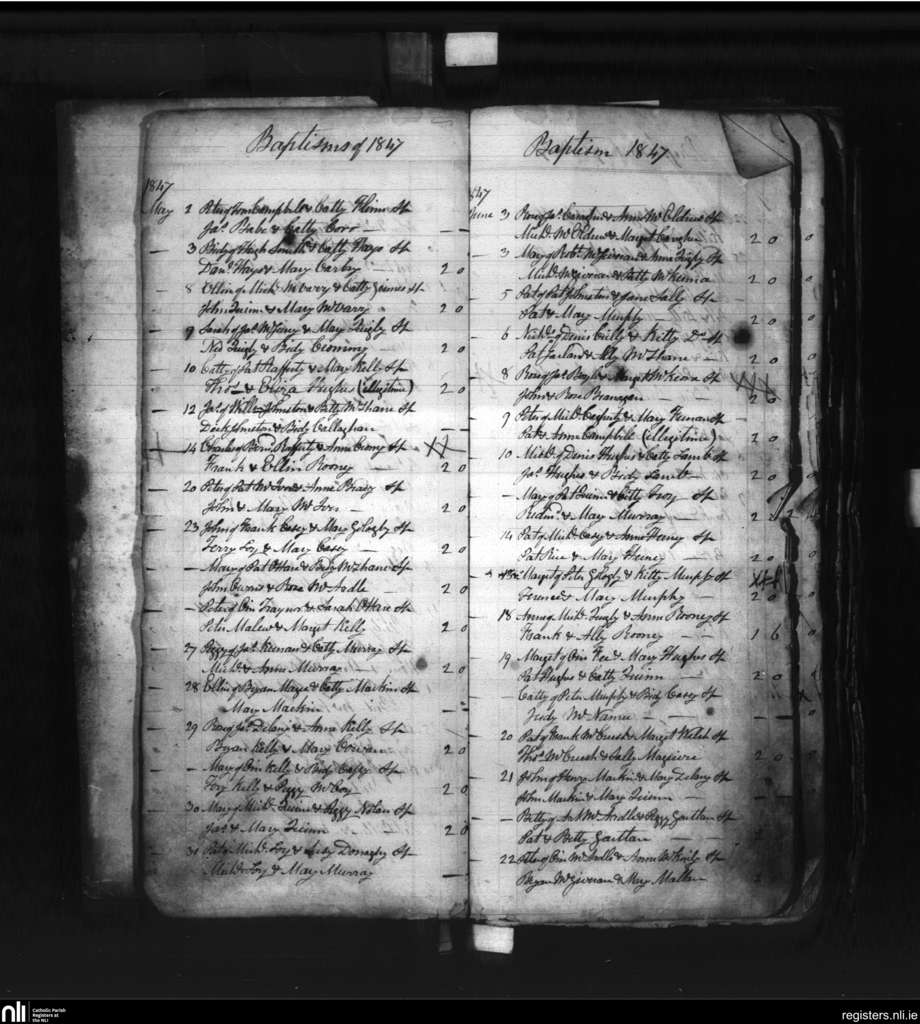 Baptisms of 1847
1847
May 2 Peter of Tom Campbile & Catty Heins Sp
Jas. Babe & Catty Corr — —
3 Bidy of Hugh Smith & Catty Hays Sp
Danl. Hays & Mary Carby 2 0
8 Ellin of Michl. McVarry & Catty Sp
John Quinn & Mary McVarry 2 0
9 Sarah of Jas. & Mary Quigly Sp
Ned Quigly & Bidy 2 0
10 Catty of Pat Rafferty & Mary Kelly Sp
Thos. & Hughes (illigitime) 2 0
12 Jas. of Willm. Johnston & Patty McShane Sp
Dick Johnston & Bidy Callaghan — —
14 Charles of Bern. Rafferty & Anne Sp
Frank & Ellin Rooney 2 0
20 Peter of Pat McIver & Anne Brady Sp
John & Mary McIver 2 0
23 John of Frank Casey & Mary Sp
Terry Foy & Mary Casey 2 0
— Mary of Pat O'Hare & Bidy McShane Sp
John Burns & Rose McArdle 2 0
— Peter of Own Traynor & Sarah O'Hare Sp
Peter Malew & Margt Kelly 2 0
27 Peggy of Jas. Keenan & Catty Murray Sp
Michl. & Anne Murray 2 0
28 Ellin of Bryan Magee & Catty Mackin Sp
Mary Mackin — —
29 Rose of Jas. Delany & Anne Kelly Sp
Bryan Kelly & Mary 2 0
— Mary of Own Kelly & Bidy Sp
Kelly & Peggy McCoy 2 0
30 Mary of Michl. Quinn & Peggy Nolan Sp
Jas. & Mary Quinn 2 0
31 Peter Michl. Foy & Judy Donaghy Sp
Michl. Foy & Mary Murray —
Baptism 1847
1847
June 3 Rose of Jas. & Anne Sp
Michl. & Margt 2 0
3 Mary of Robt. & Anne Quigly Sp
Michl. & Patty McKenna 2 0
5 Pat of Pat Johnston & Jane Lally Sp
Pat & Mary Murphy 2 0
6 Michl. of Denis Cully & Kitty Do. Sp
Pat Garland & Ally McShane 2 0
8 Rose of Jas. Boyle & Margt Sp
John & Rose Branegan 2 0
9 Peter of Michl. & Mary Sp
Pat & Anne Campbile (illegitime) 2 0
10 Michl. of Denis Hughes & Catty Lamb Sp
Jas. Hughes & Bidy Lamb 2 0
Mary of Pat Quinn & Catty Sp
Redmd. & Mary Murray 2
14 Pat of Michl. Casey & Anne Heiney Sp
Pat Rice & Mary Heiney 2 0
Margt of Peter & Kitty Murphy Sp
Terence & Mary Murphy 2 0
18 Anne of Michl. Quigly & Anne Rooney Sp
Frank & Ally Rooney 1 6
19 Margt of Own Fee & Mary Hughes Sp
Pat Hughes & Catty Quinn 2 0
Catty of Peter Murphy & Bidy Casey Sp
Judy McNamee — —
20 Pat of Frank McCuesh & Margt Welsh Sp
Thos. McCuesh & Sally Maguire 2 0
21 John of Henry Mackin & Mary Delany Sp
John Mackin & Mary Quinn —
— Betty of McArdle & Peggy Gartlan Sp
Pat & Betty Gartlan
22 Peter of Own McArdle & Anne Sp
Bryan & Mary Mallan
nli
Catholic Parish
Registers at
the NLI
registers.nli.ie